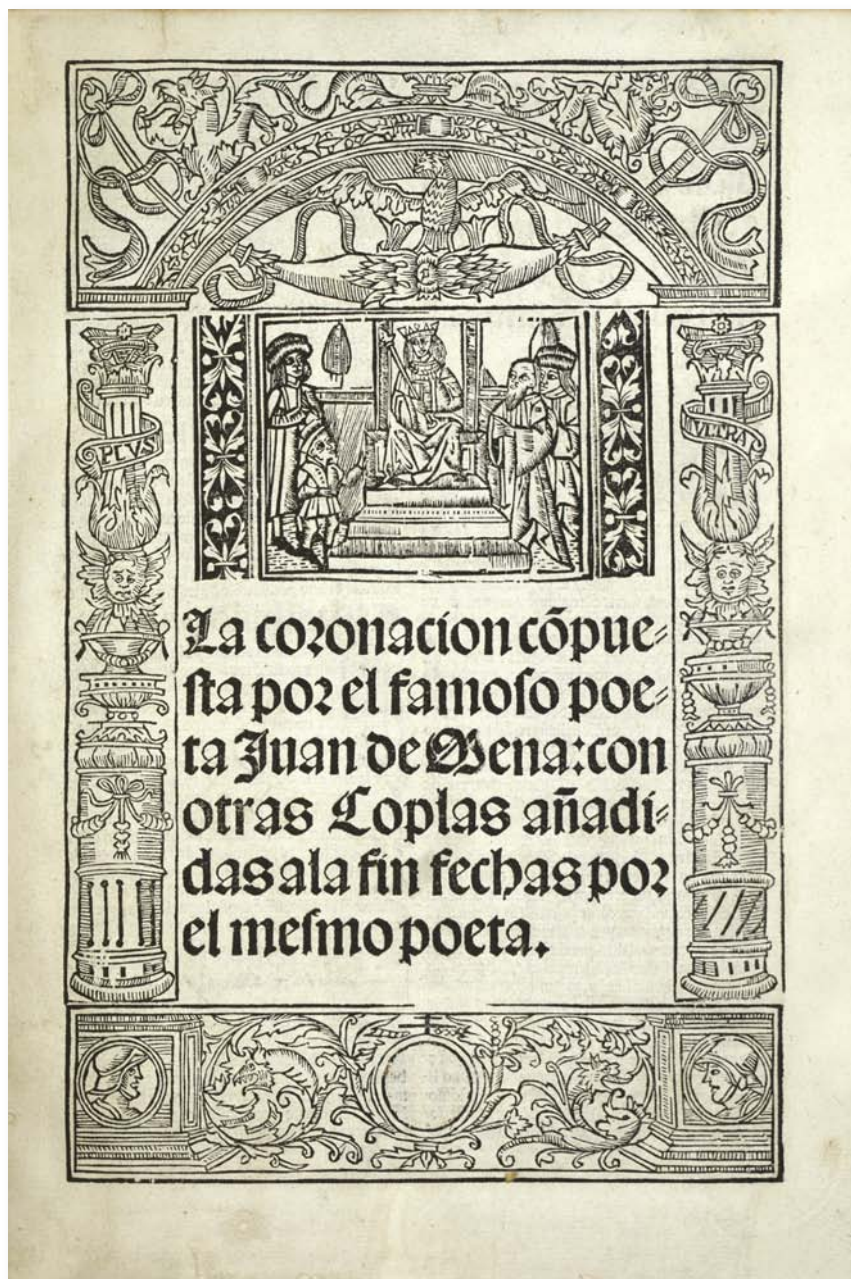 PLVS
VLTRA
La coronacion cõpue⸗
ſta por el famoſo poe⸗
ta Juan de Mena: con
otras Coplas añadi⸗
das ala fin fechas por
el meſmo poeta.